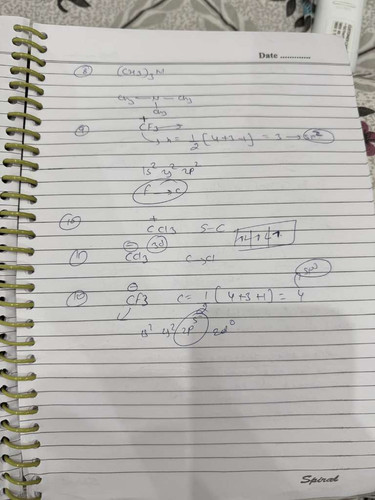 Date ............
⑧ (CH3)3N
CH3 — N — CH3
CH3
⑨ +
CF3
x = 1/2 [4+3-1] = 3 → sp2
1s² 2s² 2p²
F → C
⑩ +
CCl3
3d
⑪ ⊖
CCl3 C → Cl
⑫ ⊖
CF3 C = 1/2 (4+3+1) = 4
2p³ 2d⁰
Spiral